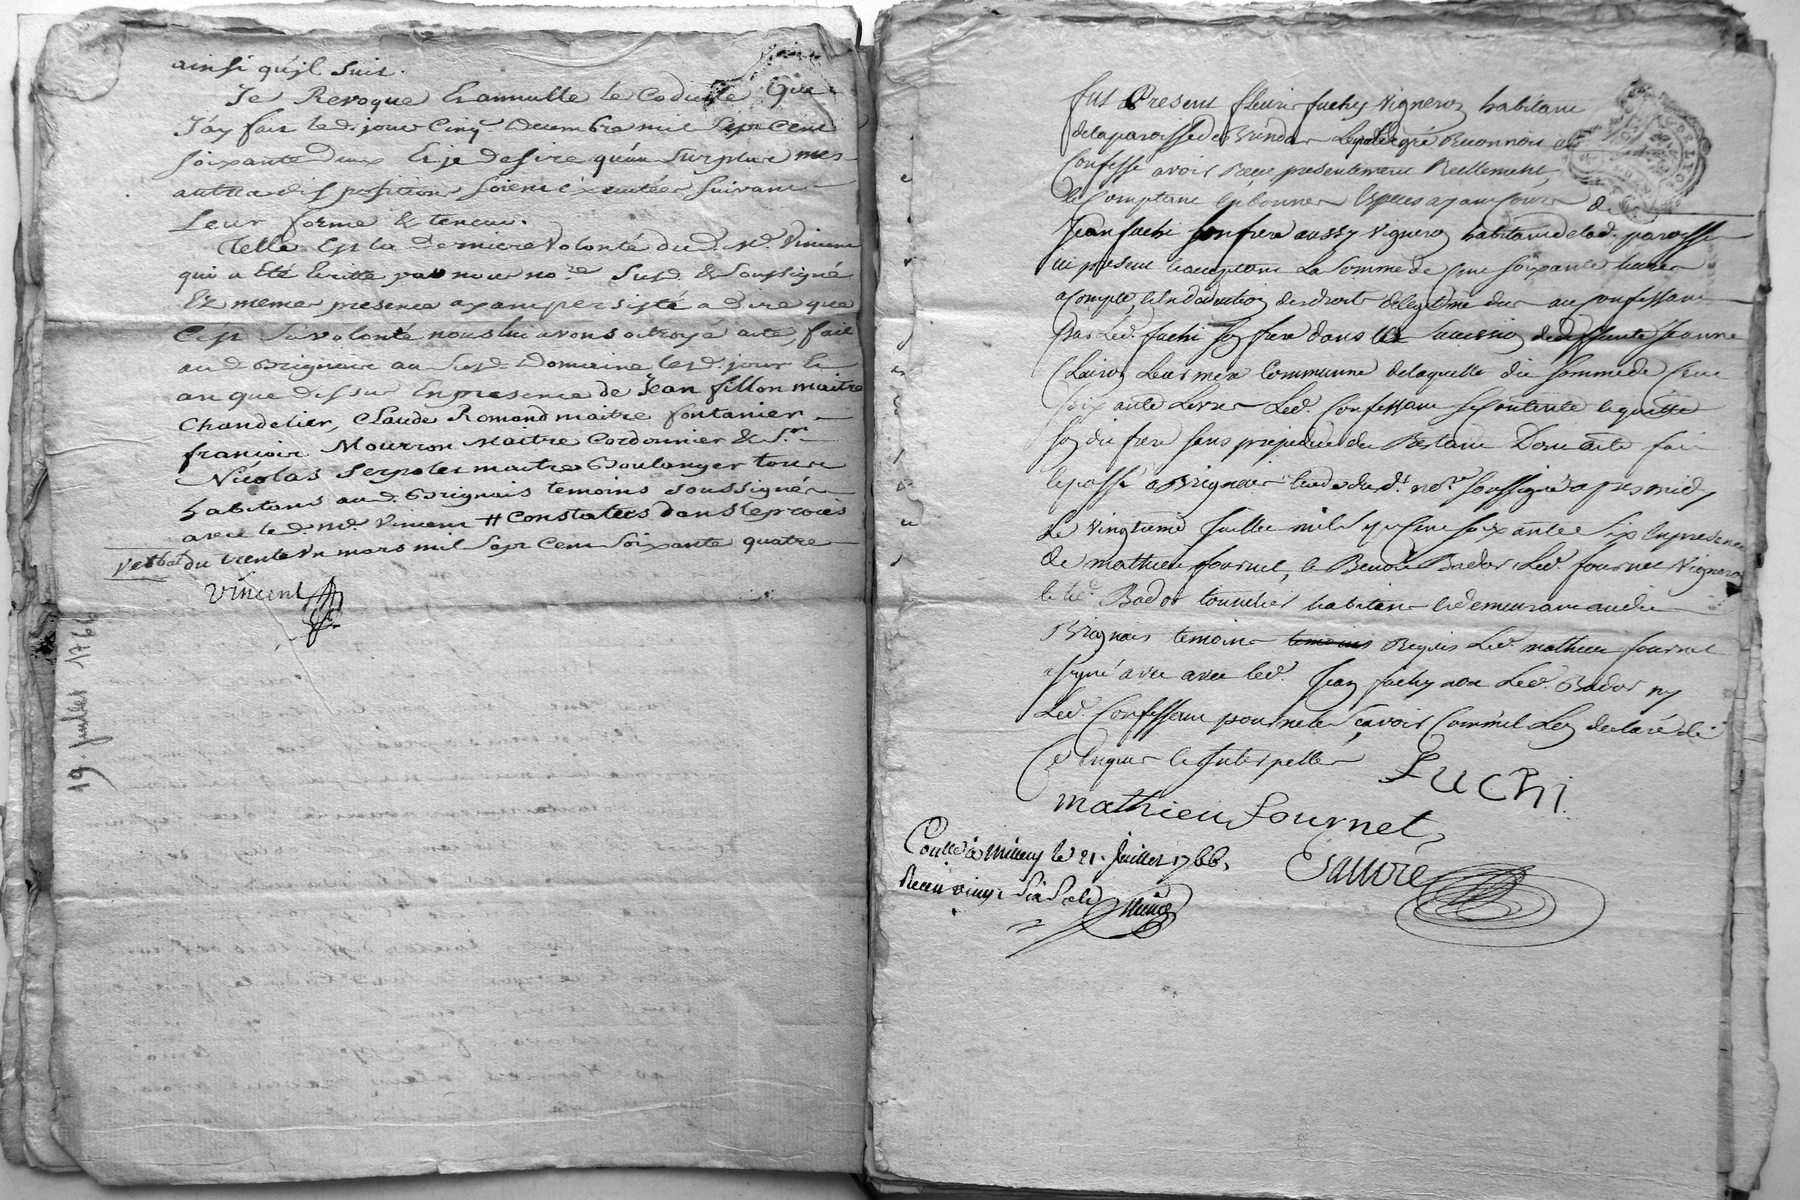 ainsi qu'il suit.
Je Revoque & annulle le Codicile Que
J'ay fait led. jour Cinq Decembre mil Sept Cent
soixante Deux Et je desire qu'au Surplus mes
autres dispositions soient executées suivant
Leur forme & teneur.
Telle Est la Derniere volonté dud. Vincent
qui a été Ecritte par nous no.re Susd. & Soussigné
Ez memes presence ayant persisté a dire que
C'est Sa volonté nous lui avons octroyé acte, fait
aud. Brignais au Susd. Domaine lesd. jour Et
an que dessus En presence de Jean fillon maitre
Chandelier, Claude Romond maitre fontanier
françois Mourron Maitre Cordonnier & S.r
Nicolas Serpolet maitre Boulanger tous
habitans aud. Brignais temoins soussignés
avec led. Vincent # Constatées dans le procès
verbal du trente un mars mil Sept Cent Soixante quatre
Vincent
19. Juillet 1766
fut Present fleurie fuchy Vigneron habitant
de la paroisse de Brindas Lequel de gré Reconnoit et
Confesse avoir Reçu presentement Reellement,
& Comptant En bonnes Especes ayant Cours de
Jean fuchi son frere aussy Vigneron habitant de lad. paroisse
ici present & acceptant La Somme de Cent soixante livres
a Compte & En deduction des droits de legitime dus au Confessant
Par Led. fuchi son frere dans la Succession de deffunte Jeanne
Clairon Leur mere Commune de laquelle ditte somme de Cent
soixante Livres Led. Confessant se Contente & quitte
son dit frere sans prejudice du Restant Dont acte fait
& passé a Brignais Etude du d.t no.re soussigné apres midy
Le vingtieme Juillet mil sept Cent soixante Six En presence
de mathieu fournet, & Benoit Bador Led. fournet Vigneron
& led. Bador tonnelier habitans & demeurant audit
Brignais temoins temoins Requis Led. mathieu fournet
a signé avec avec led. Jean fuchy non Led. Bador ny
Led. Confessant pour ne le sçavoir Comme il L'on declaré de
Ce Enquis & Interpellés
Fuchi
mathieu fournet
Controllé à Millery le 21. Juillet 1766.
Reçu vingt Six Sols